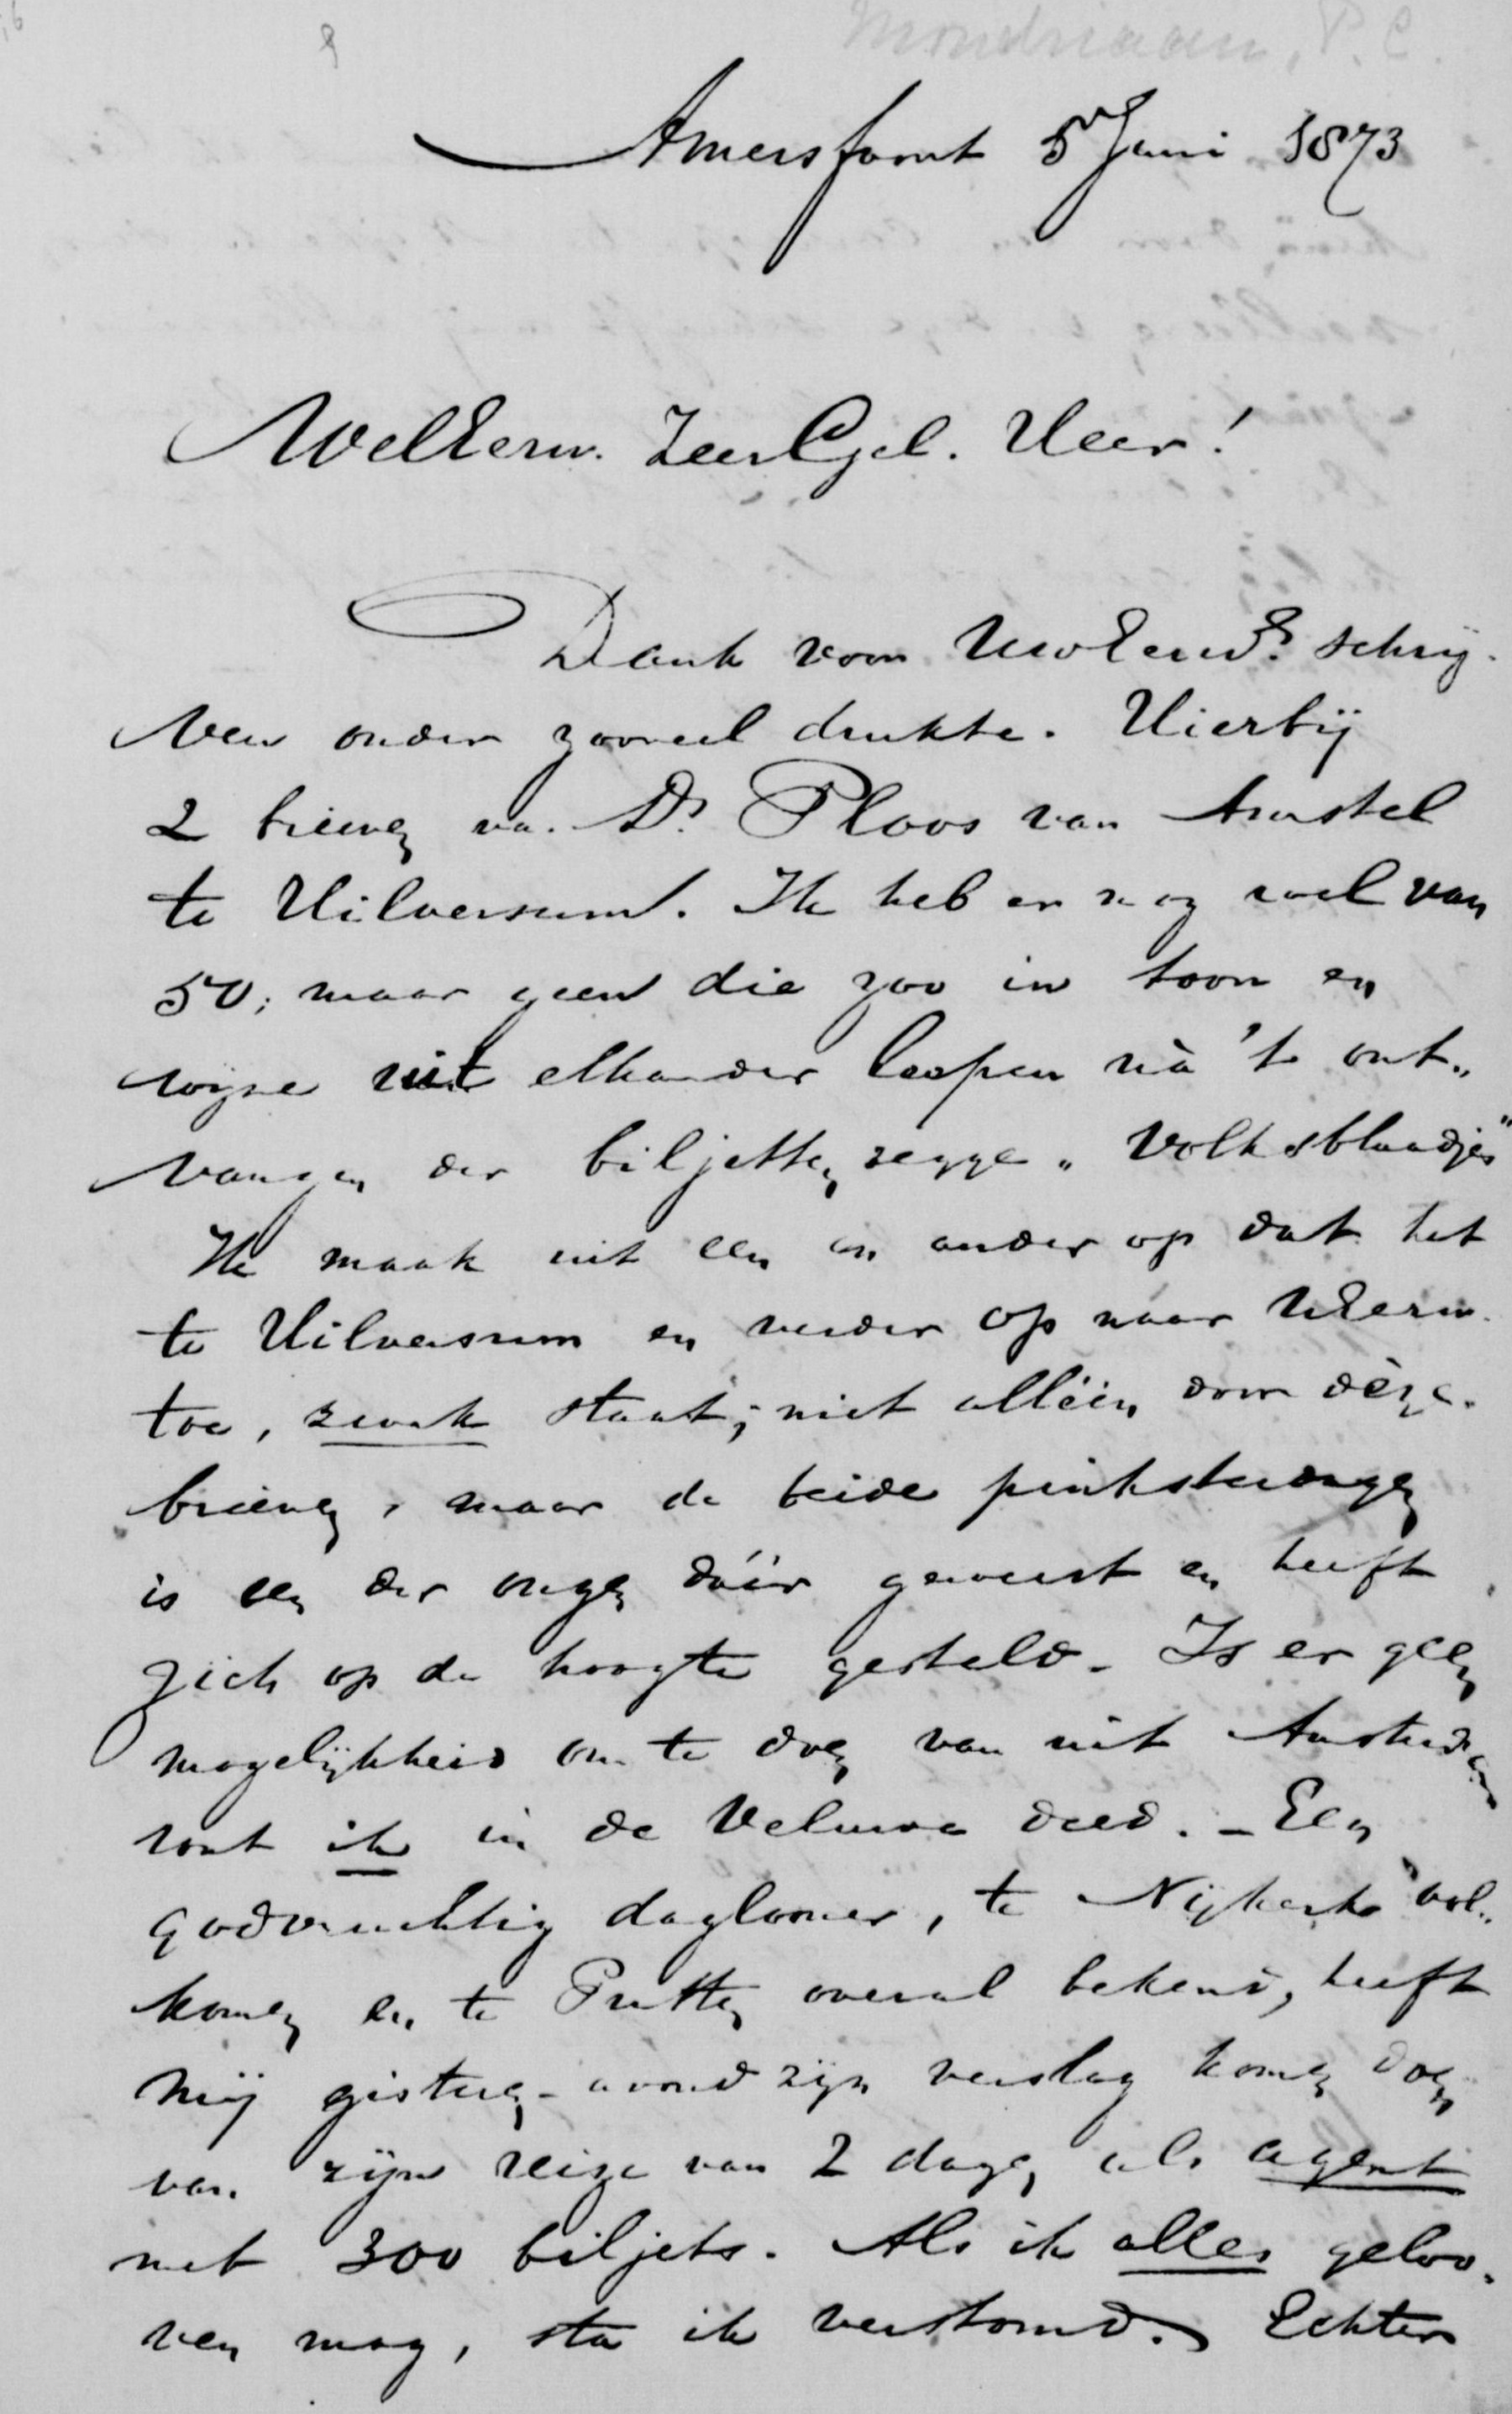 Mondriaan, P. C.
Amersfoort 5 Juni 1873
WelEerw. ZeerGel. Heer!
Dank voor UwEerwds. schrij-
ven onder zooveel drukte. Hierbij
2 brieven van Ds. Ploos van Amstel
te Hilversum. Ik heb er nog wel van
50; maar geen die zoo in toon en
wijze uit elkander loopen nà 't ont„
vangen der biljetten, zegge „Volksblaadjes"
Ik maak uit een en ander op dat het
te Hilversum en verder op naar UEerw.
toe, zwak staat; niet alléén door dèze
brieven, maar de beide pinksterdagen
is een der onzen dáár geweest en heeft
zich op de hoogte gesteld. Is er geen
mogelijkheid om te doen van uit Amsterdam
wat ik in de Veluwe deed. – Een
godvruchtig daglooner, te Nijkerk vol„
komen en te Putten overal bekend, heeft
mij gisteren-avond zijn verslag komen doen
van zijn reize van 2 dagen als agent
met 300 biljets. Als ik alles geloo-
ven mag, sta ik verstomd. Echter